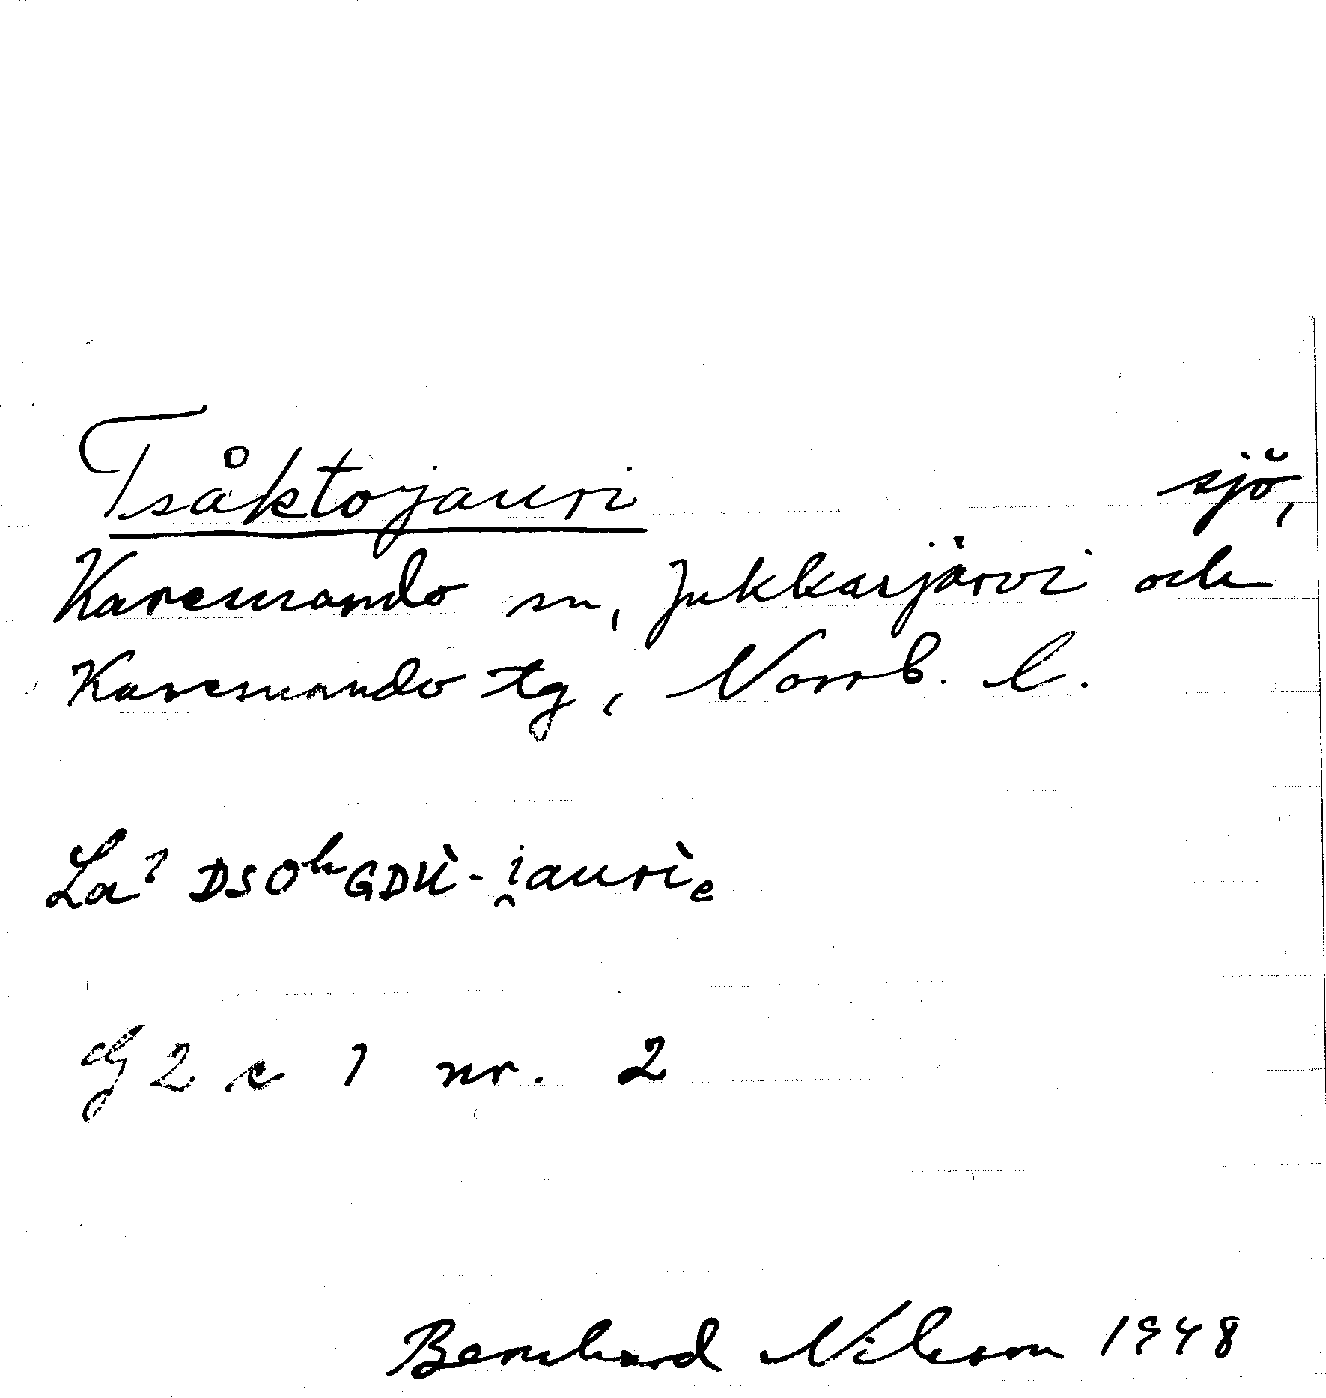 Tsåktojauri sjö,
Karesuando sn, Jukkasjärvi och
Karesuando tg, Norrb. l.
La? DSOʰGDÙ-i̯auriₑ
2 c 1 nr. 2
Bernhard Nilsson 1948